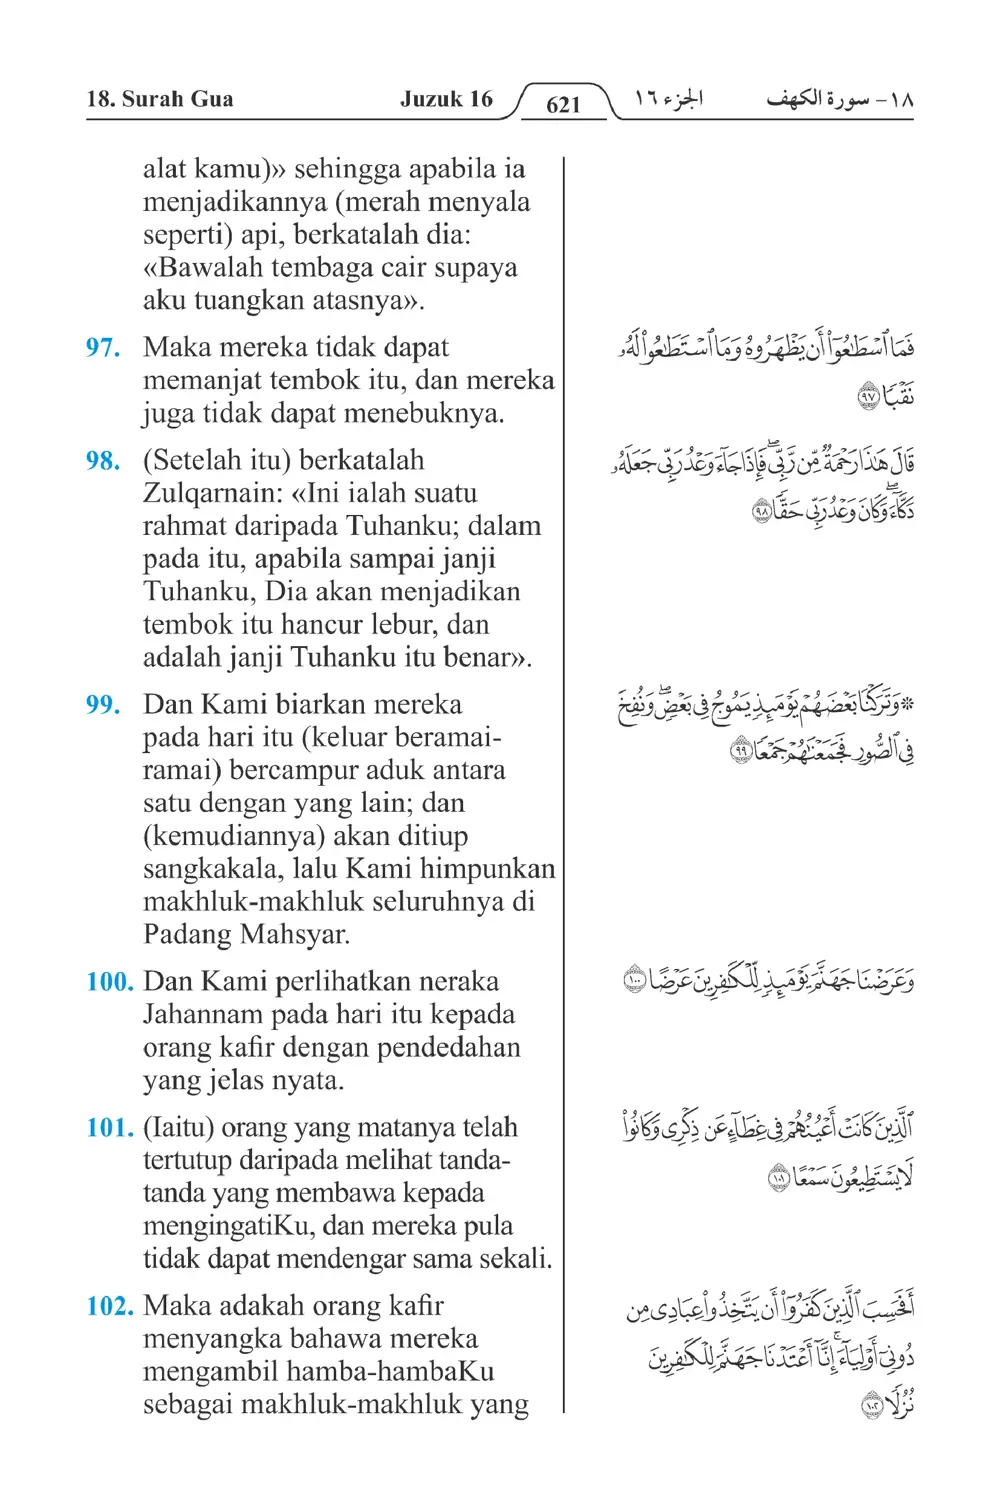 18. Surah Gua Juzuk 16 621 الجزء ١٦ ١٨- سورة الكهف
alat kamu)» sehingga apabila ia
menjadikannya (merah menyala
seperti) api, berkatalah dia:
«Bawalah tembaga cair supaya
aku tuangkan atasnya».
97. Maka mereka tidak dapat
memanjat tembok itu, dan mereka
juga tidak dapat menebuknya.
98. (Setelah itu) berkatalah
Zulqarnain: «Ini ialah suatu
rahmat daripada Tuhanku; dalam
pada itu, apabila sampai janji
Tuhanku, Dia akan menjadikan
tembok itu hancur lebur, dan
adalah janji Tuhanku itu benar».
99. Dan Kami biarkan mereka
pada hari itu (keluar beramai-
ramai) bercampur aduk antara
satu dengan yang lain; dan
(kemudiannya) akan ditiup
sangkakala, lalu Kami himpunkan
makhluk-makhluk seluruhnya di
Padang Mahsyar.
100. Dan Kami perlihatkan neraka
Jahannam pada hari itu kepada
orang kafir dengan pendedahan
yang jelas nyata.
101. (Iaitu) orang yang matanya telah
tertutup daripada melihat tanda-
tanda yang membawa kepada
mengingatiKu, dan mereka pula
tidak dapat mendengar sama sekali.
102. Maka adakah orang kafir
menyangka bahawa mereka
mengambil hamba-hambaKu
sebagai makhluk-makhluk yang
فَمَا ٱسْطَـٰعُوٓا۟ أَن يَظْهَرُوهُ وَمَا ٱسْتَطَـٰعُوا۟ لَهُۥ
نَقْبًا ٩٧
قَالَ هَـٰذَا رَحْمَةٌ مِّن رَّبِّى ۖ فَإِذَا جَآءَ وَعْدُ رَبِّى جَعَلَهُۥ
دَكَّآءَ ۖ وَكَانَ وَعْدُ رَبِّى حَقًّا ٩٨
* وَتَرَكْنَا بَعْضَهُمْ يَوْمَئِذٍ يَمُوجُ فِى بَعْضٍ ۖ وَنُفِخَ
فِى ٱلصُّورِ فَجَمَعْنَـٰهُمْ جَمْعًا ٩٩
وَعَرَضْنَا جَهَنَّمَ يَوْمَئِذٍ لِّلْكَـٰفِرِينَ عَرْضًا ١٠٠
ٱلَّذِينَ كَانَتْ أَعْيُنُهُمْ فِى غِطَآءٍ عَن ذِكْرِى وَكَانُوا۟
لَا يَسْتَطِيعُونَ سَمْعًا ١٠١
أَفَحَسِبَ ٱلَّذِينَ كَفَرُوٓا۟ أَن يَتَّخِذُوا۟ عِبَادِى مِن
دُونِىٓ أَوْلِيَآءَ ۚ إِنَّآ أَعْتَدْنَا جَهَنَّمَ لِلْكَـٰفِرِينَ
نُزُلًا ١٠٢